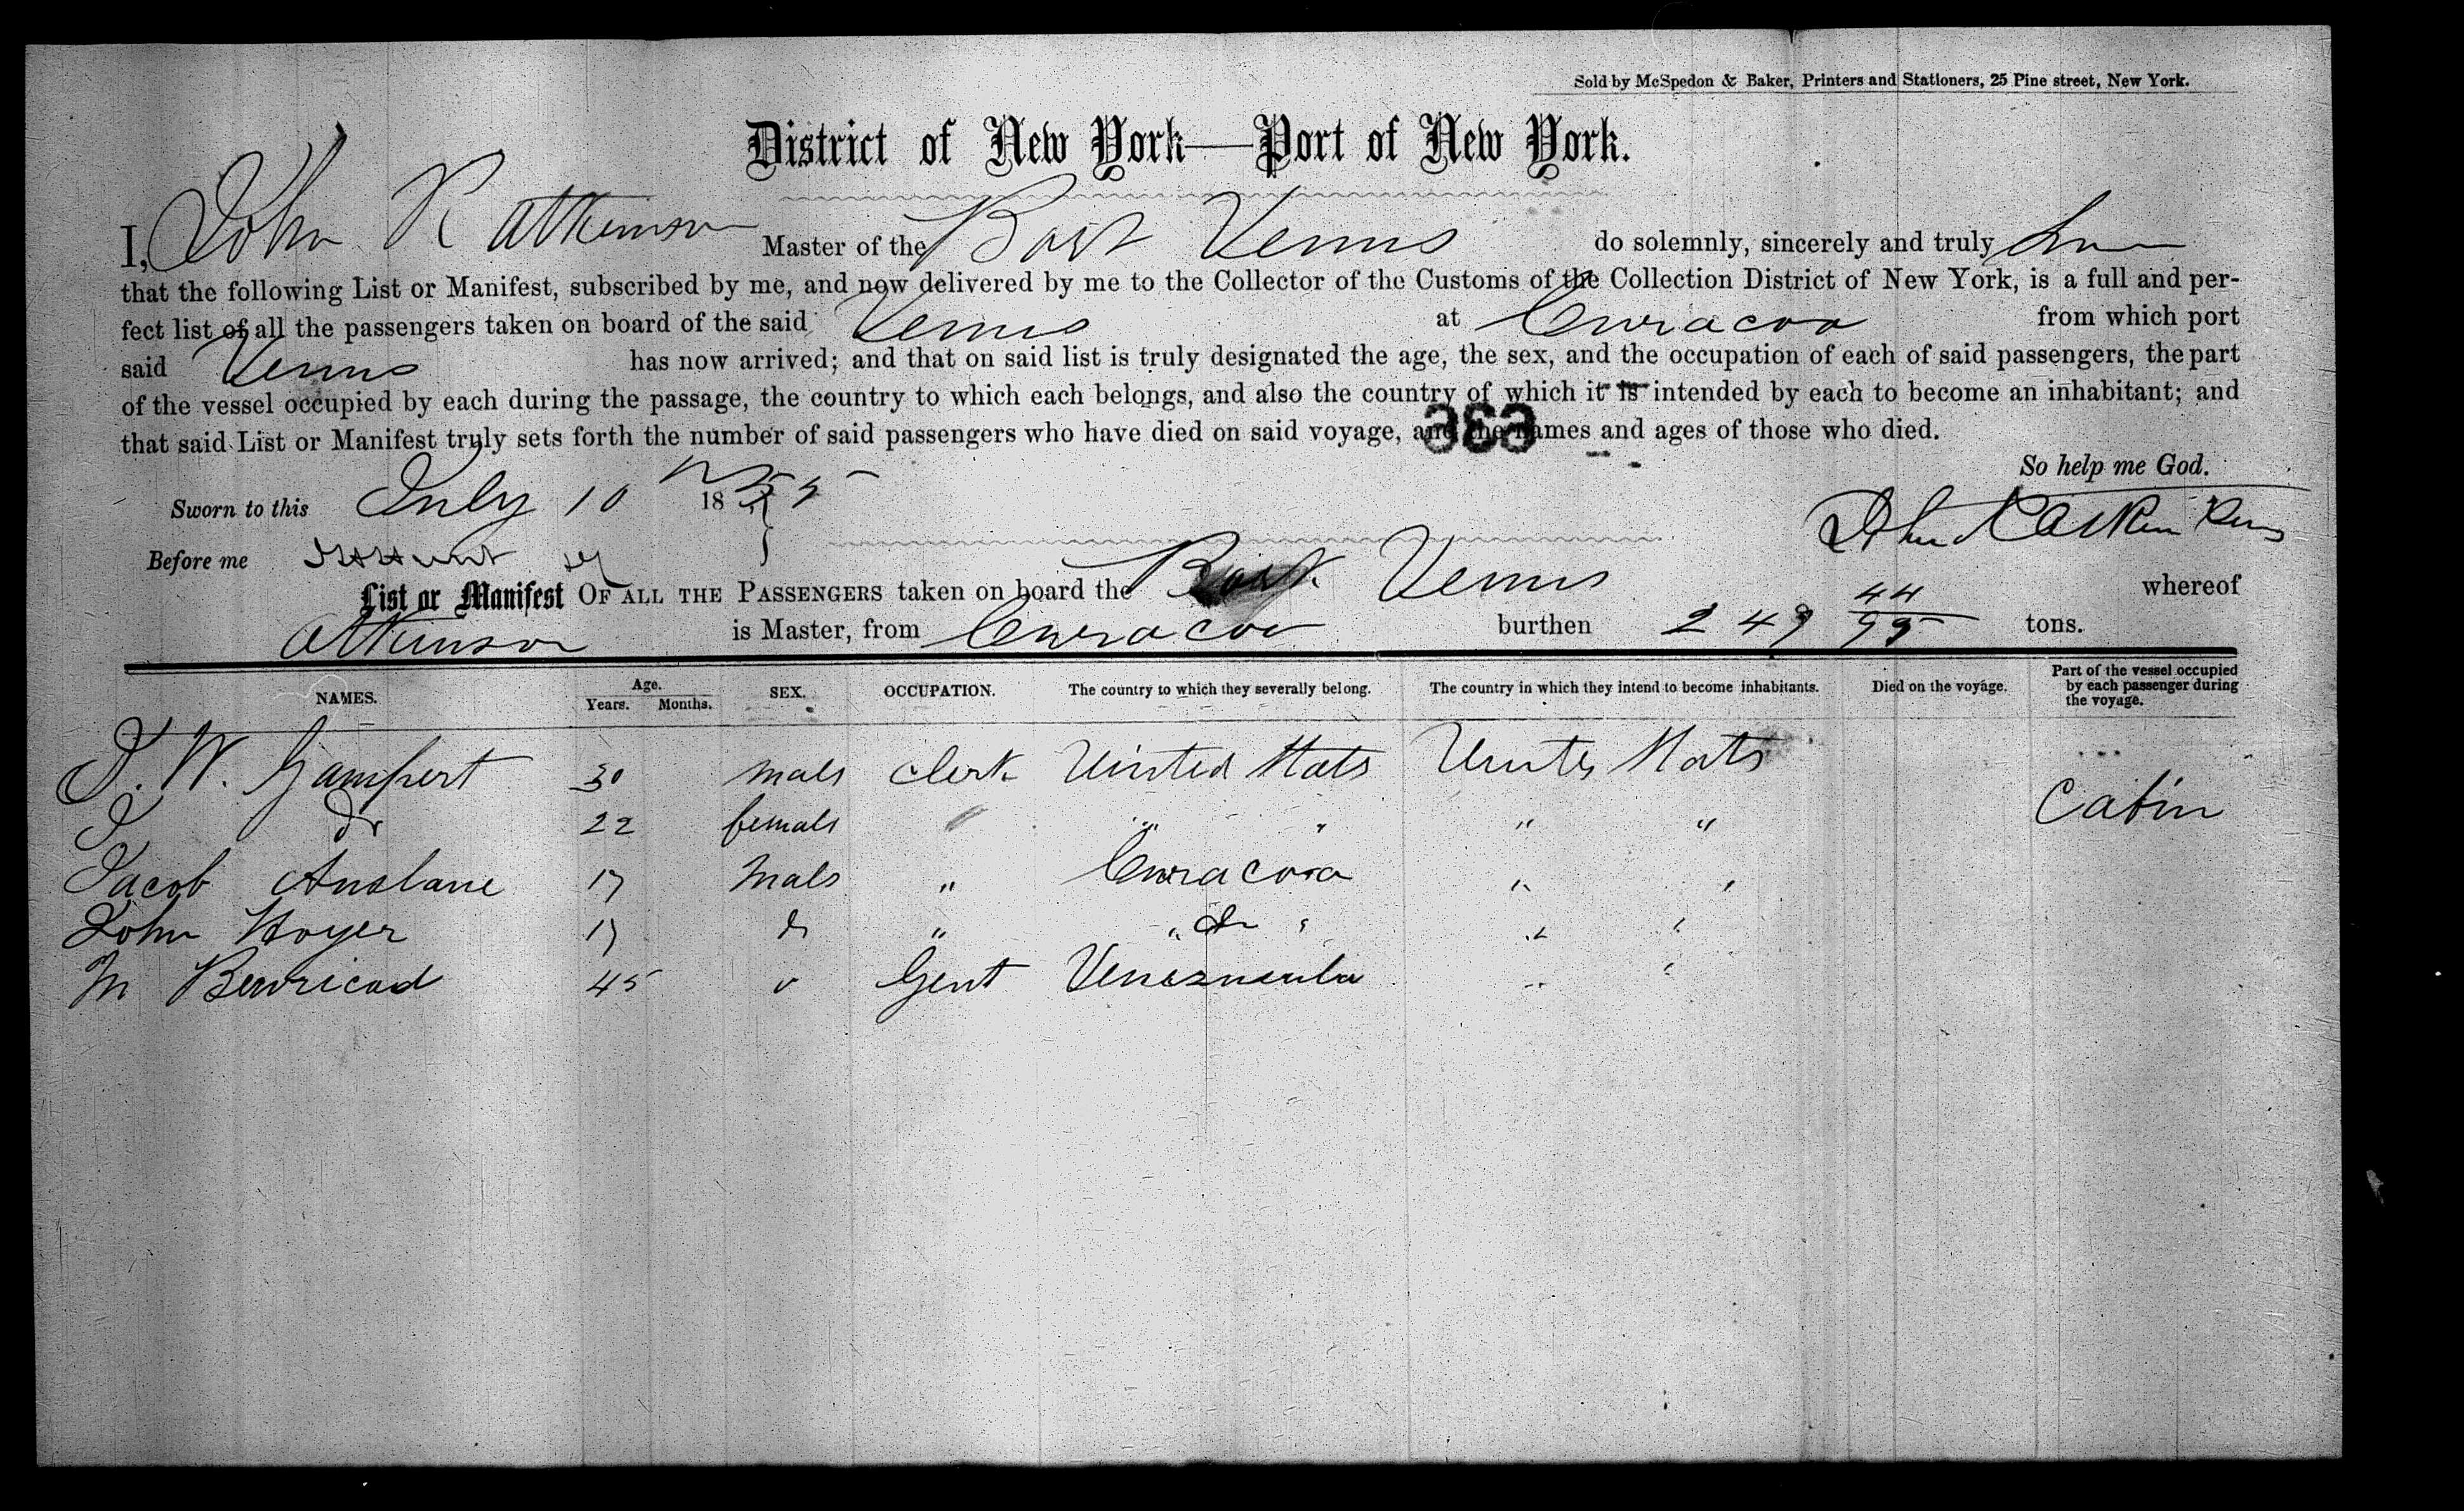 Sold by McSpedon & Baker, Printers and Stationers, 25 Pine street, New York.
District of New York—Port of New York.
I, John R Atkinson Master of the Bark Venus do solemnly, sincerely and truly
that the following List or Manifest, subscribed by me, and now delivered by me to the Collector of the Customs of the Collection District of New York, is a full and per-
fect list of all the passengers taken on board of the said Venus at Curacoa from which port
said Venus has now arrived; and that on said list is truly designated the age, the sex, and the occupation of each of said passengers, the part
of the vessel occupied by each during the passage, the country to which each belongs, and also the country of which it is intended by each to become an inhabitant; and
that said List or Manifest truly sets forth the number of said passengers who have died on said voyage, and the names and ages of those who died.
363
So help me God.
Sworn to this July 10 1855
Before me
List or Manifest OF ALL THE PASSENGERS taken on board the Bark Venus whereof
Atkinson is Master, from Curacoa burthen 249 44/95 tons.
NAMES. Age. Years. Months. SEX. OCCUPATION. The country to which they severally belong. The country in which they intend to become inhabitants. Died on the voyage. Part of the vessel occupied by each passenger during the voyage.
J. W. Gampert 30 male clerk United States United States
J do 22 female " " " " Cabin
Jacob Anslane 17 Male " Curacoa " "
John Hoyer 17 do " " do " " "
M 45 " Gent Venezuela " "